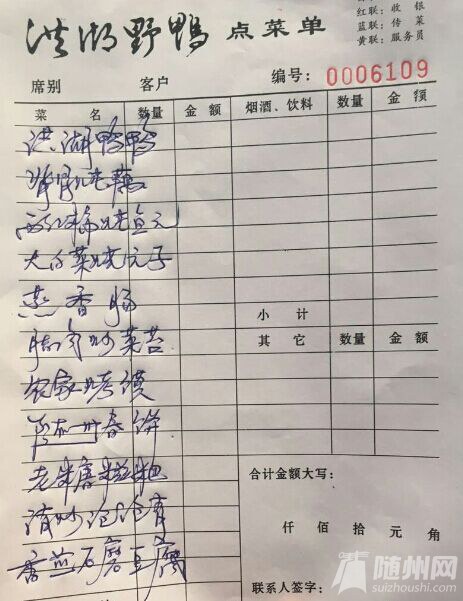 红联：收银
蓝联：传菜
黄联：服务员
洪湖野鸭 点菜单
席别 客户 编号：0006109
菜名 数量 金额 烟酒、饮料 数量 金额
洪湖野鸭
西红柿烧鱼元
大白菜烧元子
蒸香肠 小计
腊肉炒菜苔 其它 数量 金额
农家烤馍
春饼
老朱唐糍粑 合计金额大写：
清炒泥蒿 仟佰拾元角
香煎石磨豆腐
联系人签字：
随州网
suizhoushi.com